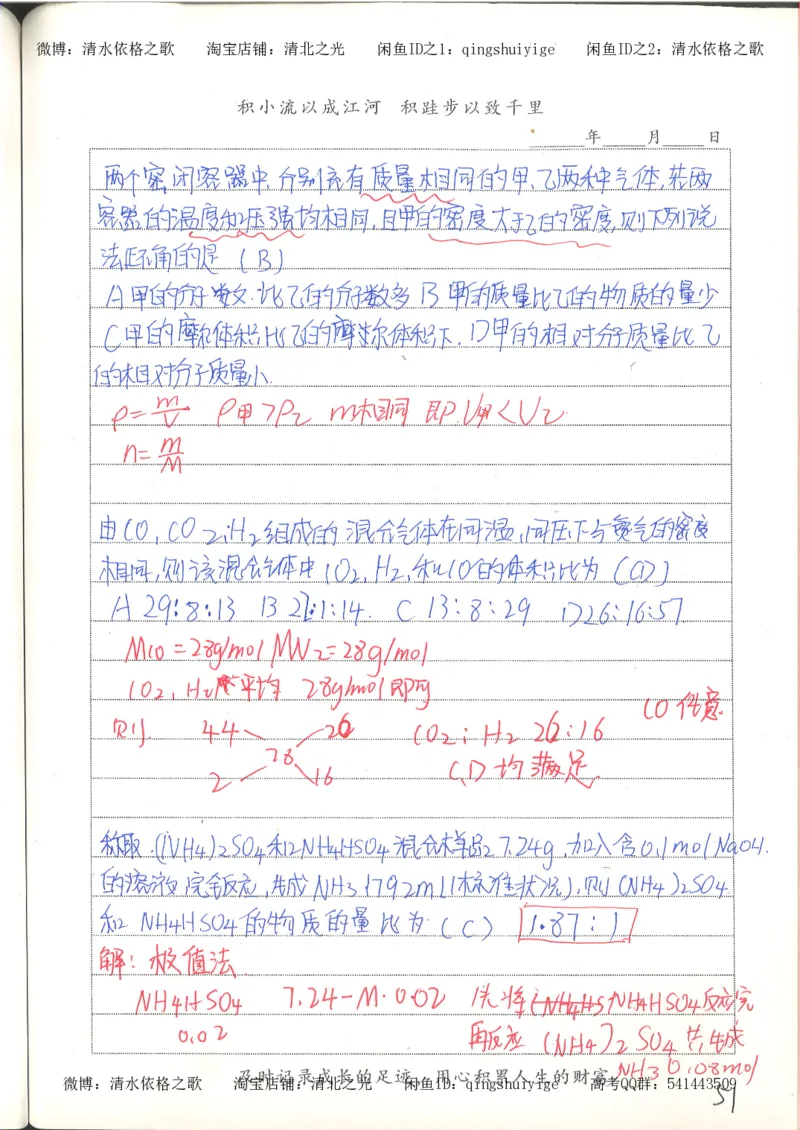 微博：清水依格之歌 淘宝店铺：清北之光 闲鱼ID之1：qingshuiyige 闲鱼ID之2：清水依格之歌
积小流以成江河 积跬步以致千里
年 月 日
两个密闭容器中，分别充有质量相同的甲、乙两种气体，若两
容器的温度和压强均相同，且甲的密度大于乙的密度，则下列说
法正确的是 (B)
A 甲的分子数比乙的分子数多 B 甲的质量比乙的物质的量少
C 甲的摩尔体积比乙的摩尔体积小. D 甲的相对分子质量比乙
的相对分子质量小.
ρ=m/V ρ甲>ρ乙 m相同 即V甲<V乙
n=m/M
由CO, CO2, H2组成的混合气体在同温,同压下与氮气的密度
相同,则该混合气体中CO2,H2,和CO的体积比为 (CD)
A 29:8:13 B 22:1:14. C 13:8:29 D 26:16:57
MCO=28g/mol MN2=28g/mol
CO2,H2 平均 28g/mol即可
则 44 26 CO2:H2 26:16 CO任意
28
2 16 C,D均满足.
称取(NH4)2SO4和NH4HSO4混合样品7.24g,加入含0.1molNaOH
的溶液完全反应,生成NH3 1792ml(标准状况),则(NH4)2SO4
和NH4HSO4的物质的量比为 (C) 1.87:1
解：极值法
NH4HSO4 7.24-M·0.02 先将NH4HSO4反应完
0.02 再反应 (NH4)2SO4 共生成
NH3 0.08mol
及时记录成长的足迹 用心积累人生的财富
微博：清水依格之歌 淘宝店铺：清北之光 闲鱼ID：qingshuiyige 高考QQ群：541443509
51